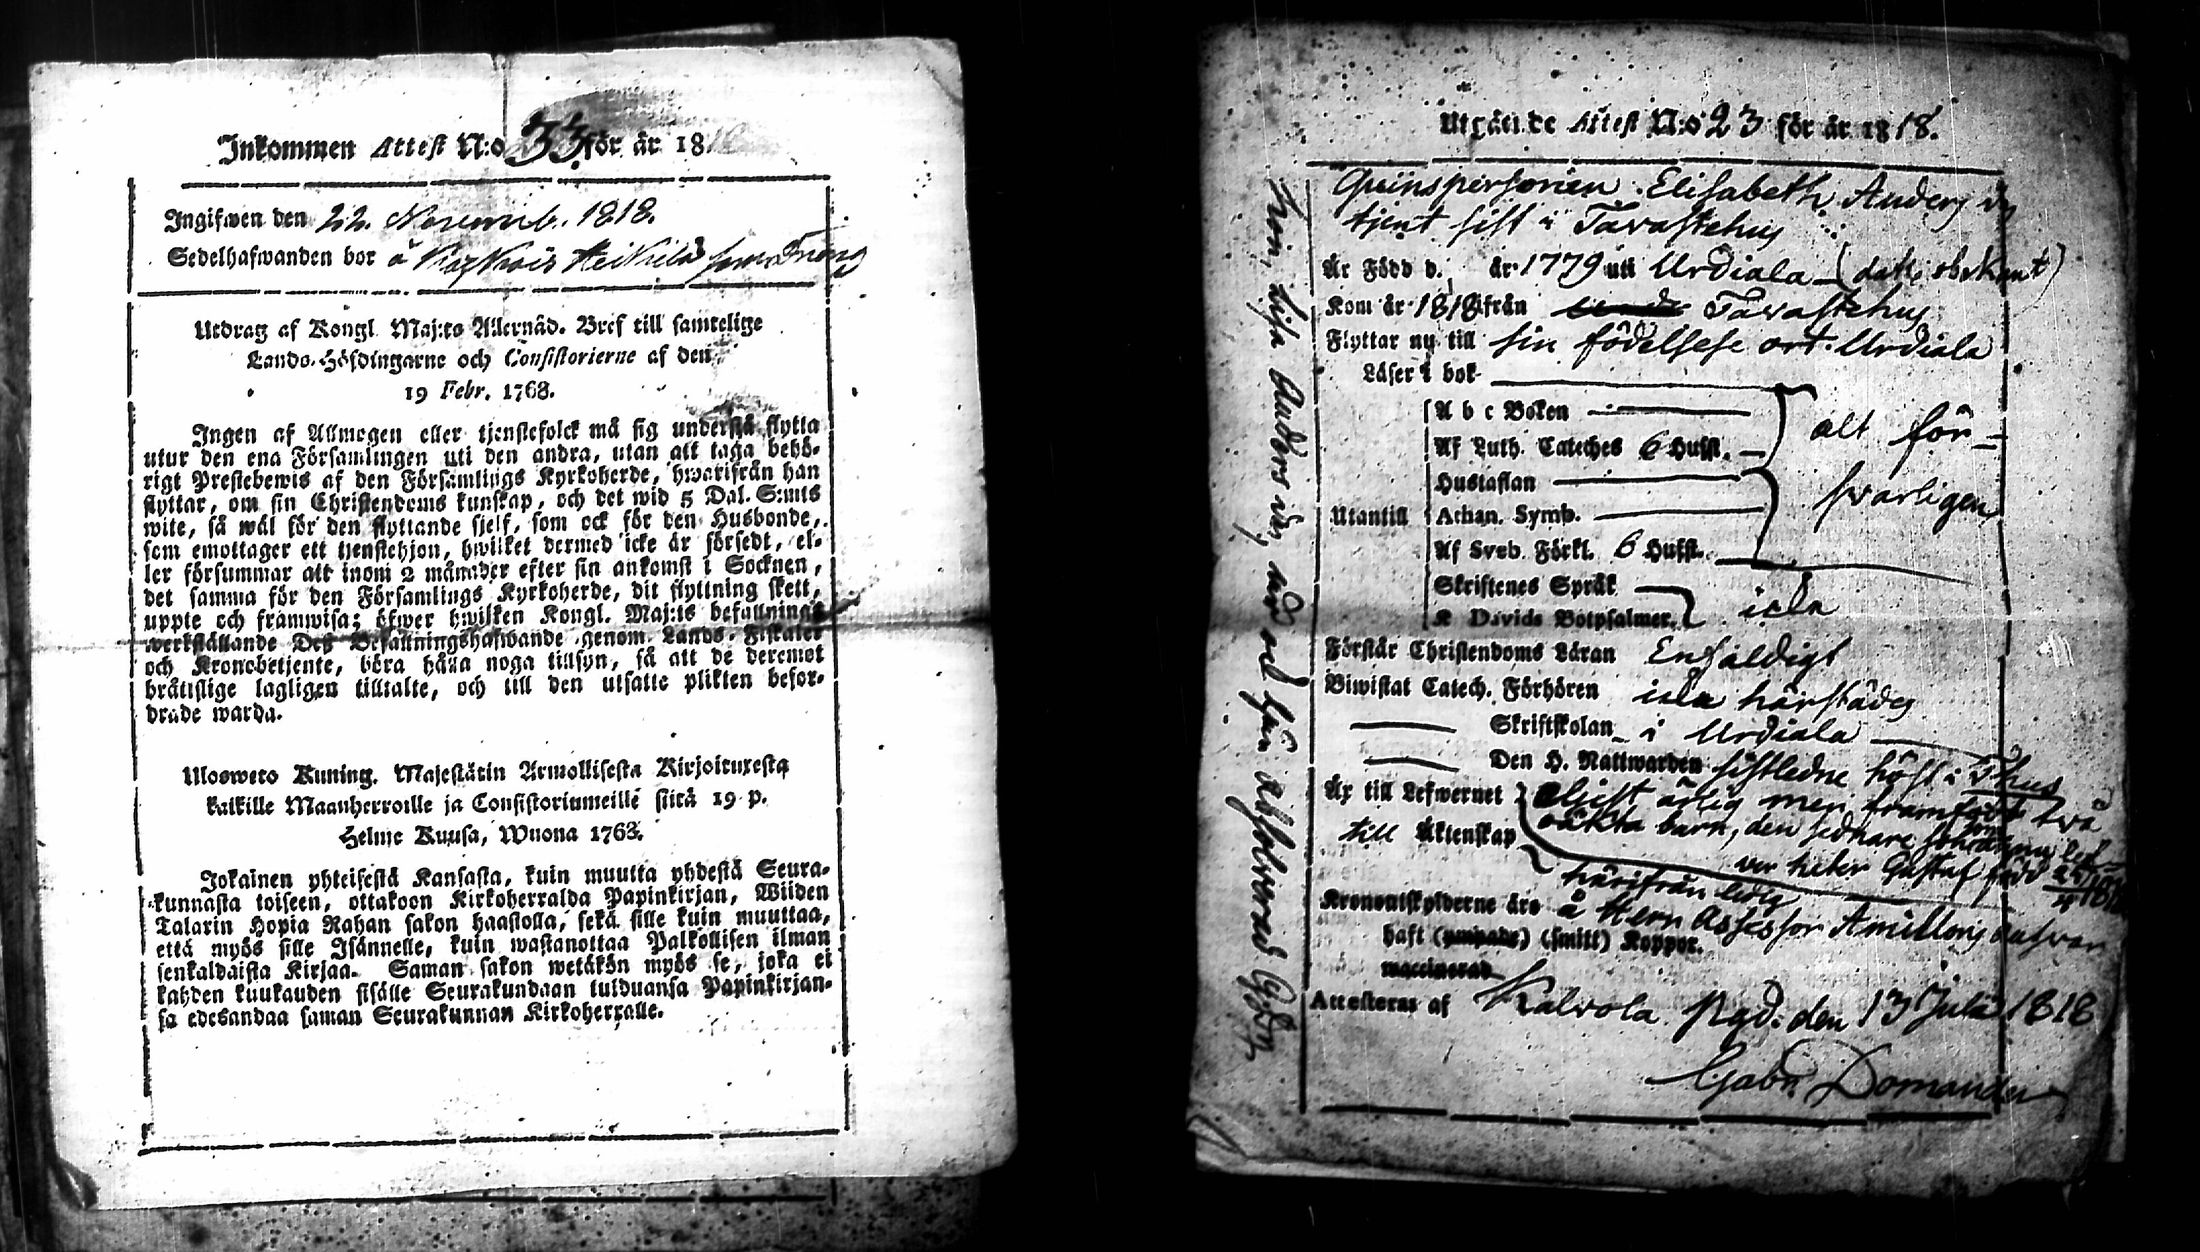 Inkommen Attest N:o 33 för år 181
Ingifwen den 22. Novemb. 1818.
Sedelhafwanden bor å Heikilä som Dräng
Utdrag af Kongl. Maj:ts Allernåd. Bref till samtelige
Lands-Höfdingarne och Consistorierne af den
19 Febr. 1763.
Ingen af Allmogen eller tjenstefolck må sig understå flytta
utur den ena Församlingen uti den andra, utan att taga behö-
rigt Prestebewis af den Församlings Kyrkoherde, hwarifrån han
flyttar, om sin Christendoms kunskap, och det wid 5 Dal. S:mts
wite, så wäl för den flyttande sjelf, som ock för den Husbonde,
som emottager ett tjenstehjon, hwilket dermed icke är försedt, el-
ler försummar att inom 2 månader efter sin ankomst i Socknen,
det samma för den Församlings Kyrkoherde, dit flyttning skett,
uppte och framwisa; öfwer hwilken Kongl. Maj:ts befallnings
werkställande Des Befallningshafwande genom Lands-Fiskaler
och Kronobetjente, böra hålla noga tillsyn, så att de deremot
bråttslige lagligen tilltalte, och till den utsatte plikten befor-
drade warda.
Ulosweto Kuning. Majestätin Armollisesta Kirjoituxesta
kaikille Maanherroille ja Consistoriumeille siitä 19 p.
Helme Kuusa, Wuona 1763.
Jokainen yhteisestä Kansasta, kuin muutta yhdestä Seura-
kunnasta toiseen, ottakoon Kirkoherralda Papinkirjan, Wiiden
Talarin Hopia Rahan sakon haastolla, sekä sille kuin muuttaa,
että myös sille Isännelle, kuin wastanottaa Palkollisen ilman
senkaldaista Kirjaa. Saman sakon wetäkön myös se, joka ei
kahden kuukauden sisälle Seurakundaan tulduansa Papinkirjan-
sa edesandaa saman Seurakunnan Kirkoherralle.
Utgående Attest N:o 23 för år 1818.
Qvinspersonen Elisabeth Anders dr
tjent sist i Tavastehus
Är Född d. år 1779 uti Urdiala (dat. obekant)
Kom år 1818 ifrån Tavastehus
Flyttar nu till sin födelsese ort Urdiala
Läser i bok
A b c Boken
alt för-
Af Luth. Cateches 6 Hufst.
Hustaflan
svarligen
Utantill Athan. Symb.
Af Sveb. Förkl. 6 Hufst.
Skriftenes Språk
icke
K Davids Botpsalmer.
Förstår Christendoms Läran Enfaldigt
Biwistat Catech. Förhören icke härstädes
Skriftskolan i Urdiala
Den H. Nattwarden sistledne höst i Thus
Är till Lefwernet eljest ärlig men framfödt två
oäkta barn, den sednare
till Äktenskap
heter Gustaf född
härifrån ledig
Kronoutskylderne äro å Herr Assessor
haft (ympade) (smitt) Koppor.
waccinerad
Attesteras af Kalvola Pgd. den 13 Julii 1818
Gabr. Domander
Lisa Anders dr,